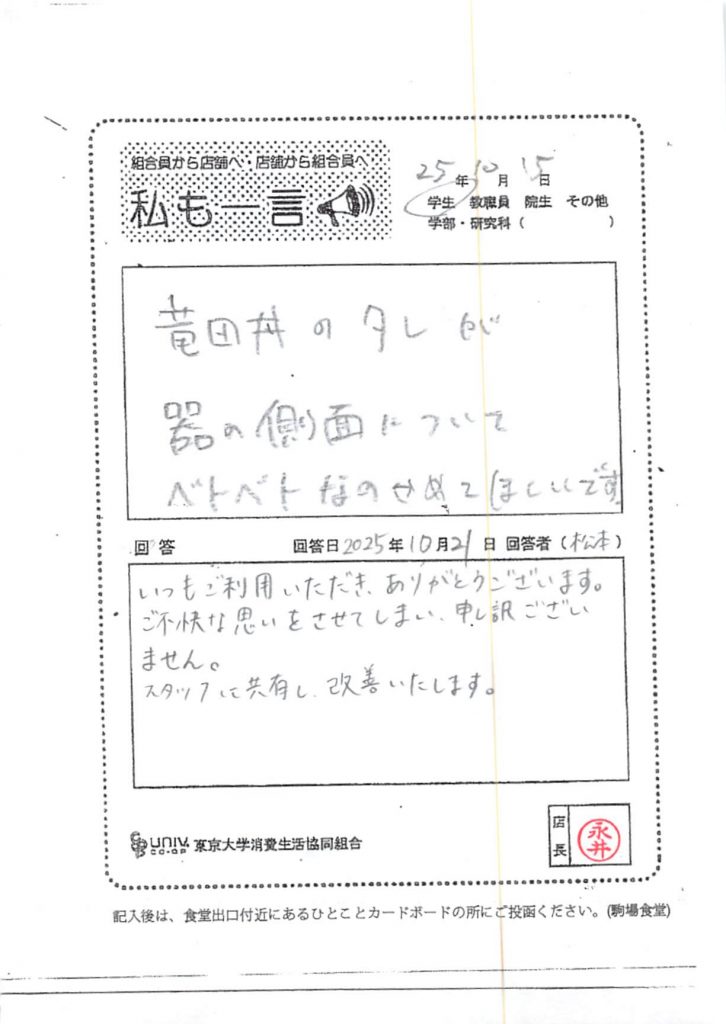 組合員から店舗へ・店舗から組合員へ
私も一言
25年10月15日
学生 教職員 院生 その他
学部・研究科（　　　　　）
竜田丼のタレが
器の側面について
ベトベトなのやめてほしいです
回答 回答日2025年10月21日 回答者（松本）
いつもご利用いただき、ありがとうございます。
ご不快な思いをさせてしまい、申し訳ござい
ません。
スタッフに共有し、改善いたします。
UNIV.
CO-OP
東京大学消費生活協同組合
店長
永井
記入後は、食堂出口付近にあるひとことカードボードの所にご投函ください。(駒場食堂)